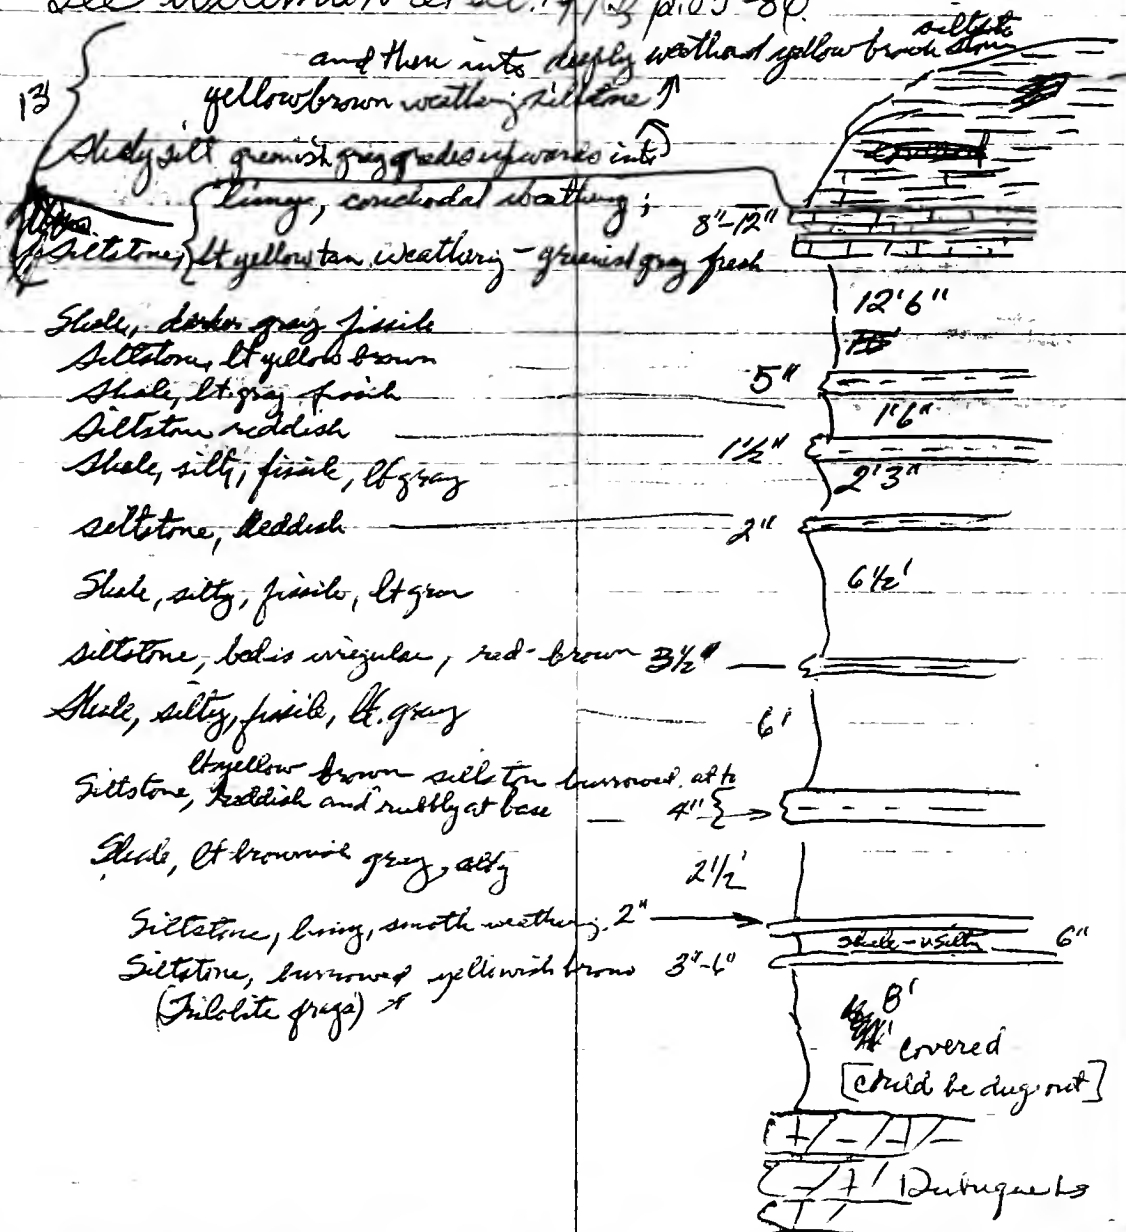 See et al. 1972 p.83-86.
and then into deeply weathered yellow brown siltstone
13'
yellowbrown weathering siltstone
Shaly silt greenish gray grades upwards into
limey, conchodal weathering;
8"-12"
Siltstone, lt yellow tan weathering - greenish gray fresh
12'6"
Shale, darker gray fissile
Siltstone, lt yellow brown
5"
Shale, lt. gray fissile
1'6"
Siltstone reddish
1 1/2"
Shale, silty, fissile, lt gray
2'3"
Siltstone, Reddish
2"
Shale, silty, fissile, lt gray
6 1/2'
Siltstone, bed is irregular, red-brown 3 1/2"
Shale, silty, fissile, lt. gray
6'
lt yellow brown siltston burrowed at
Siltstone, reddish and rubbly at base
4"
Shale, lt brownish gray, silty
2 1/2'
Siltstone, limy, smooth weathering, 2"
shale - v silty
6"
Siltstone, burrowed yellowish brown 3"-6"
(Trilobite frags)
8'
covered
[could be dug out]
Dubuque Ls